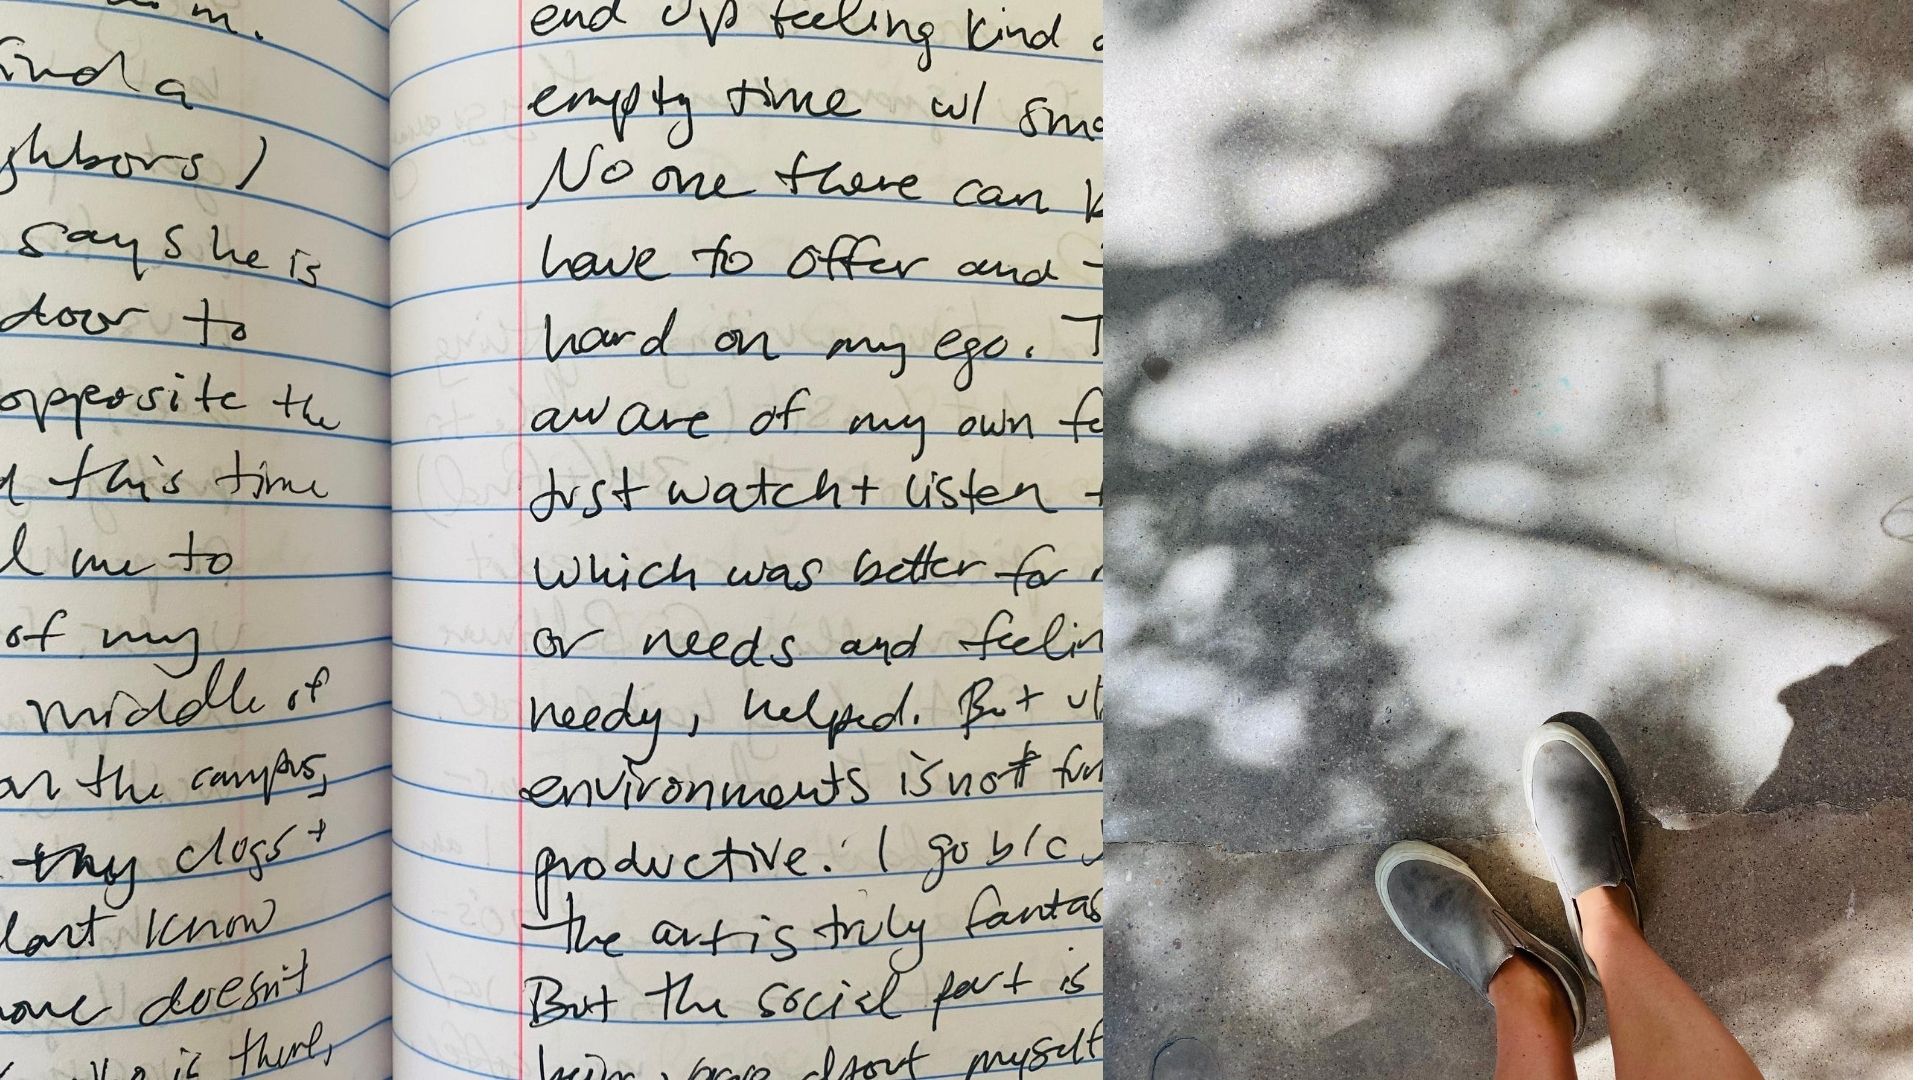 m.
find a
ghbors)
says he is
door to
opposite the
d this time
l me to
of my
middle of
on the campus,
they clogs +
dont know
one doesn't
who is there,
end up feeling kind o
empty time w/ sma
No one there can k
have to offer and
hard on my ego. T
aware of my own fe
Just watch + listen +
which was better for
or needs and feelin
needy, helped. But ul
environments is not fun
productive. I go b/c
the art is truly fantas
But the social part is
about myself